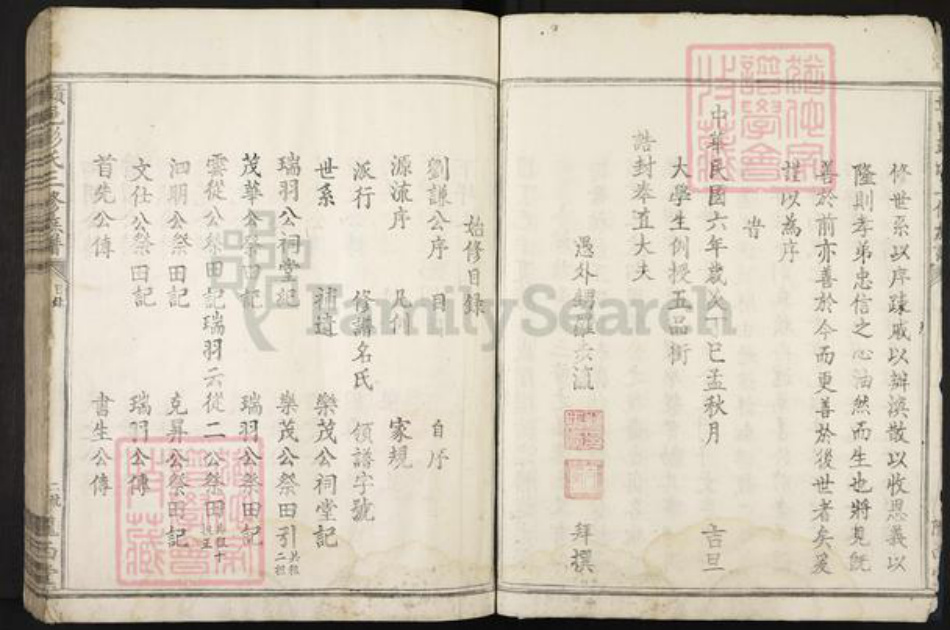 修世系以序疎戚以辨渙散以收恩義以
隆則孝弟忠信之心油然而生也將見旣
善於前亦善於今而更善於後世者矣爰
謹以為序
旹
中華民國六年歲次丁巳孟秋月 吉旦
大學生例授五品銜
誥封奉直大夫
愚外甥羅 拜撰
始修目錄
劉謙公序 目 自序
源流序 凡例 家規
派行 修譜名氏 領譜字號
世系 補遺 樂茂公祠堂記
瑞羽公祠堂記 樂茂公祭田引
茂華公祭田記 瑞羽公祭田記
雲從公祭田記 瑞羽云從二公祭田
泗明公祭田記 克昇公祭田記
文仕公祭田記 瑞羽公傳
首先公傳 書生公傳
FamilySearch